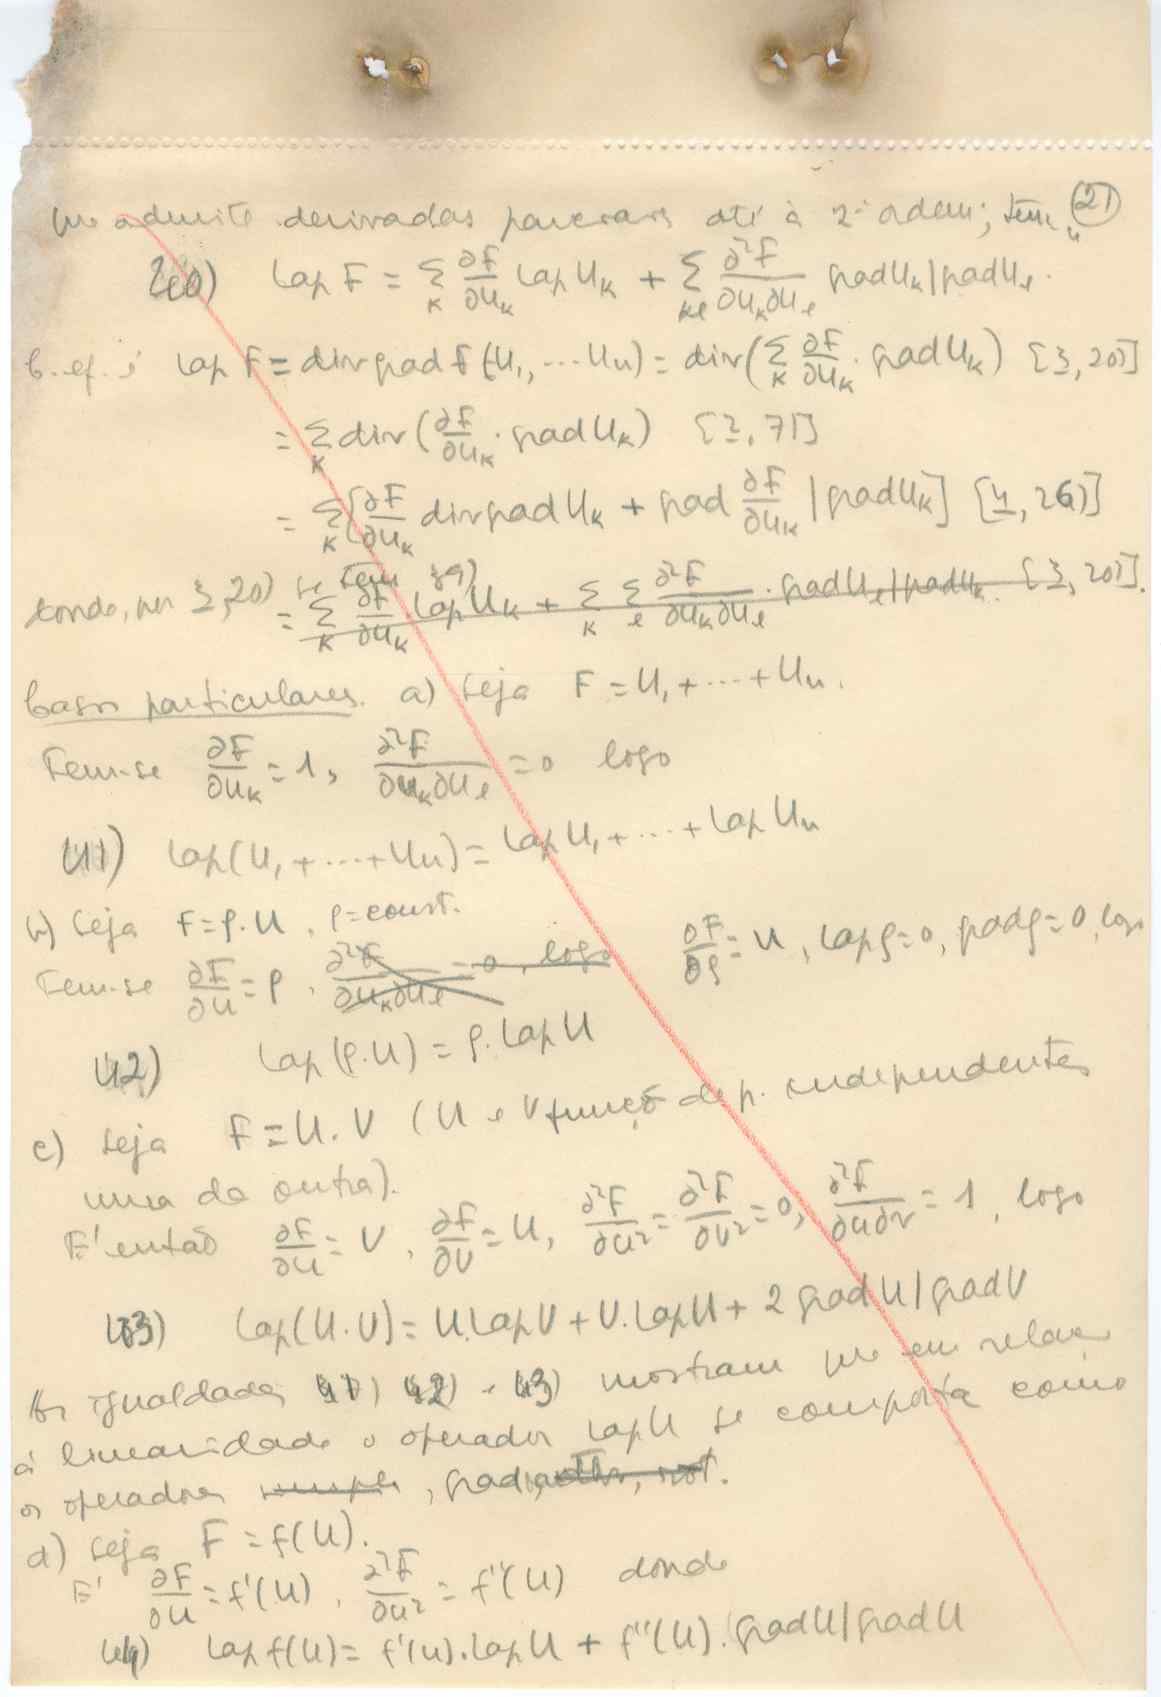 que admite derivadas parciais até à 2ª ordem; tem-se (21)
40) lap F = Σ_k ∂F/∂U_k lap U_k + Σ_kl ∂²F/∂U_k∂U_l grad U_k | grad U_l.
C. ef. é lap F = div grad F(U₁, ... Uₙ) = div(Σ_k ∂F/∂U_k · grad U_k) [3, 20)]
= Σ_k div(∂F/∂U_k · grad U_k) [2, 7)]
= Σ_k [∂F/∂U_k div grad U_k + grad ∂F/∂U_k | grad U_k] [4, 26)]
donde, por 3, 20) se tem 39)
= Σ_k ∂F/∂U_k · lap U_k + Σ_k Σ_l ∂²F/∂U_k∂U_l · grad U_l | grad U_k. [3, 20)].
Casos particulares. a) Seja F = U₁ + ... + Uₙ.
Tem-se ∂F/∂U_k = 1, ∂²F/∂U_k∂U_l = 0 logo
41) lap(U₁ + ... + Uₙ) = lap U₁ + ... + lap Uₙ
b) Seja F = ρ·U, ρ = const.
Tem-se ∂F/∂U = ρ, ∂²F/∂U_k∂U_l = 0, logo ∂F/∂ρ = U, lap ρ = 0, grad ρ = 0, logo
42) lap(ρ·U) = ρ·lap U
c) Seja F = U·V (U e V funções de p. independentes
uma da outra).
E' então ∂F/∂U = V, ∂F/∂V = U, ∂²F/∂U² = ∂²F/∂V² = 0, ∂²F/∂U∂V = 1, logo
43) lap(U·V) = U·lap V + V·lap U + 2 grad U | grad V
As igualdades 41) 42) e 43) mostram que em relação
à linearidade o operador lap U se comporta como
os operadores, grad, rot.
d) Seja F = f(U).
E' ∂F/∂U = f'(U), ∂²F/∂U² = f''(U) donde
44) lap f(U) = f'(U)·lap U + f''(U)·grad U | grad U